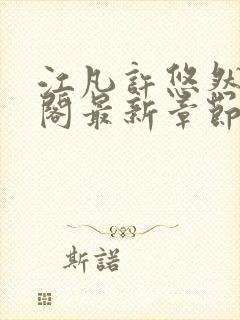 江凡許悠然
閣最新章節
斯諾